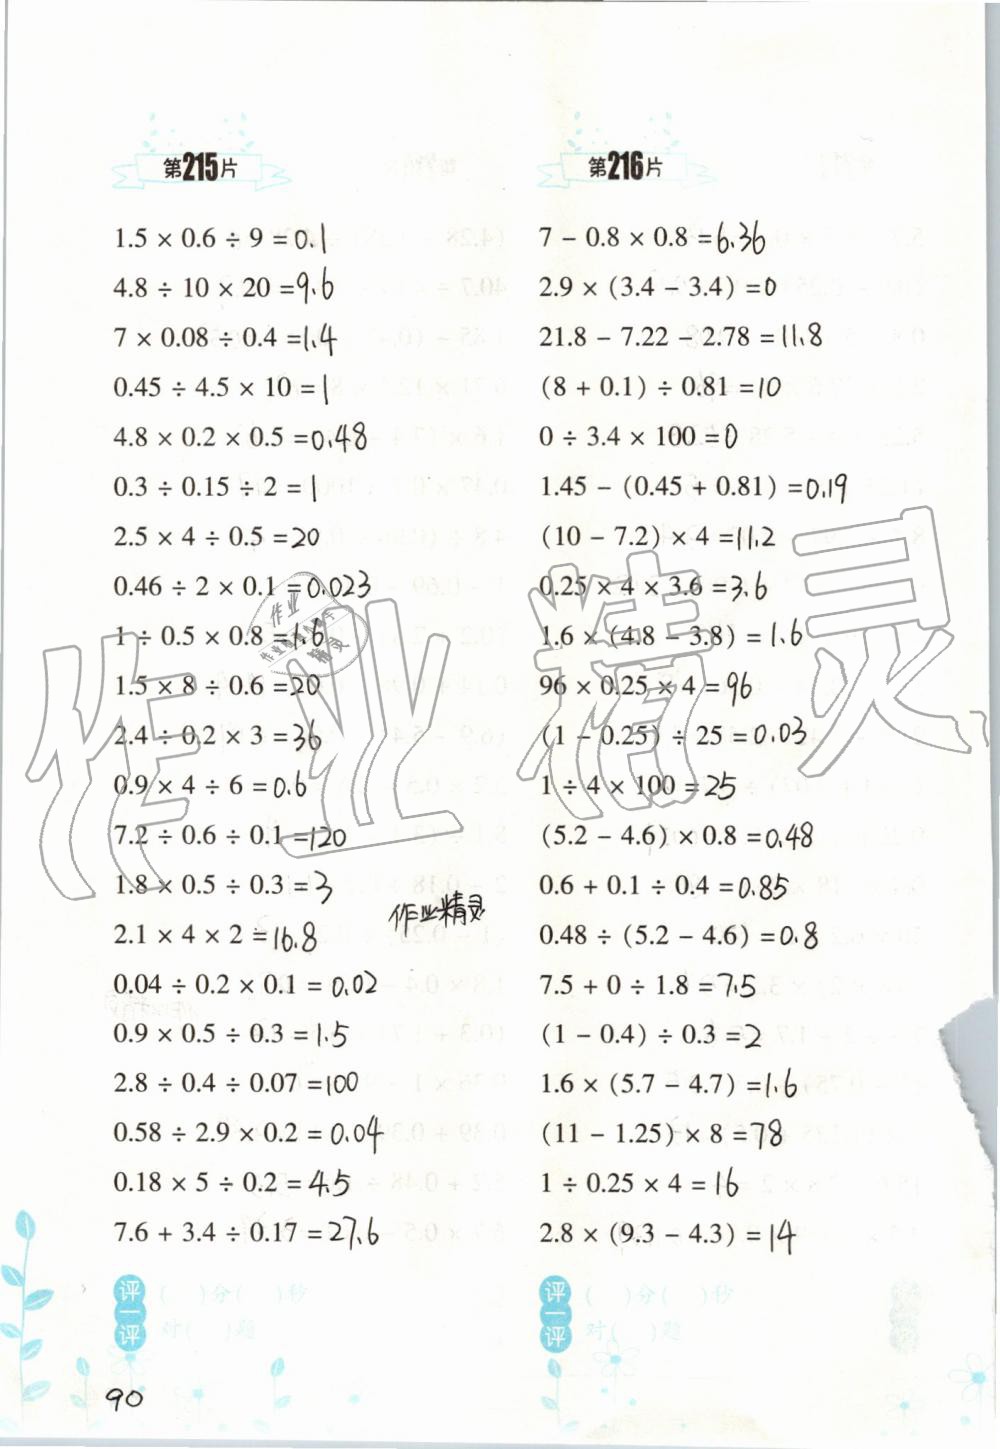 第215片
1.5 × 0.6 ÷ 9 = 0.1
4.8 ÷ 10 × 20 = 9.6
7 × 0.08 ÷ 0.4 = 1.4
0.45 ÷ 4.5 × 10 = 1
4.8 × 0.2 × 0.5 = 0.48
0.3 ÷ 0.15 ÷ 2 = 1
2.5 × 4 ÷ 0.5 = 20
0.46 ÷ 2 × 0.1 = 0.023
1 ÷ 0.5 × 0.8 = 1.6
1.5 × 8 ÷ 0.6 = 20
2.4 ÷ 0.2 × 3 = 36
0.9 × 4 ÷ 6 = 0.6
7.2 ÷ 0.6 ÷ 0.1 = 120
1.8 × 0.5 ÷ 0.3 = 3
2.1 × 4 × 2 = 16.8
0.04 ÷ 0.2 × 0.1 = 0.02
0.9 × 0.5 ÷ 0.3 = 1.5
2.8 ÷ 0.4 ÷ 0.07 = 100
0.58 ÷ 2.9 × 0.2 = 0.04
0.18 × 5 ÷ 0.2 = 4.5
7.6 + 3.4 ÷ 0.17 = 27.6
评一评
( )分( )秒
对( )题
第216片
7 − 0.8 × 0.8 = 6.36
2.9 × (3.4 − 3.4) = 0
21.8 − 7.22 − 2.78 = 11.8
(8 + 0.1) ÷ 0.81 = 10
0 ÷ 3.4 × 100 = 0
1.45 − (0.45 + 0.81) = 0.19
(10 − 7.2) × 4 = 11.2
0.25 × 4 × 3.6 = 3.6
1.6 × (4.8 − 3.8) = 1.6
96 × 0.25 × 4 = 96
(1 − 0.25) ÷ 25 = 0.03
1 ÷ 4 × 100 = 25
(5.2 − 4.6) × 0.8 = 0.48
0.6 + 0.1 ÷ 0.4 = 0.85
0.48 ÷ (5.2 − 4.6) = 0.8
7.5 + 0 ÷ 1.8 = 7.5
(1 − 0.4) ÷ 0.3 = 2
1.6 × (5.7 − 4.7) = 1.6
(11 − 1.25) × 8 = 78
1 ÷ 0.25 × 4 = 16
2.8 × (9.3 − 4.3) = 14
评一评
( )分( )秒
对( )题
作业精灵
作业精灵
90